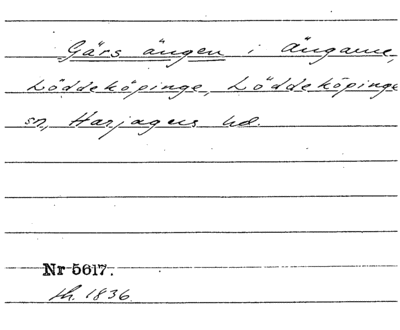 Gärs ängen i Ängarne,
Löddeköpinge, Löddeköpinge
sn, Harjagers hd.
Nr 5617.
sk. 1836